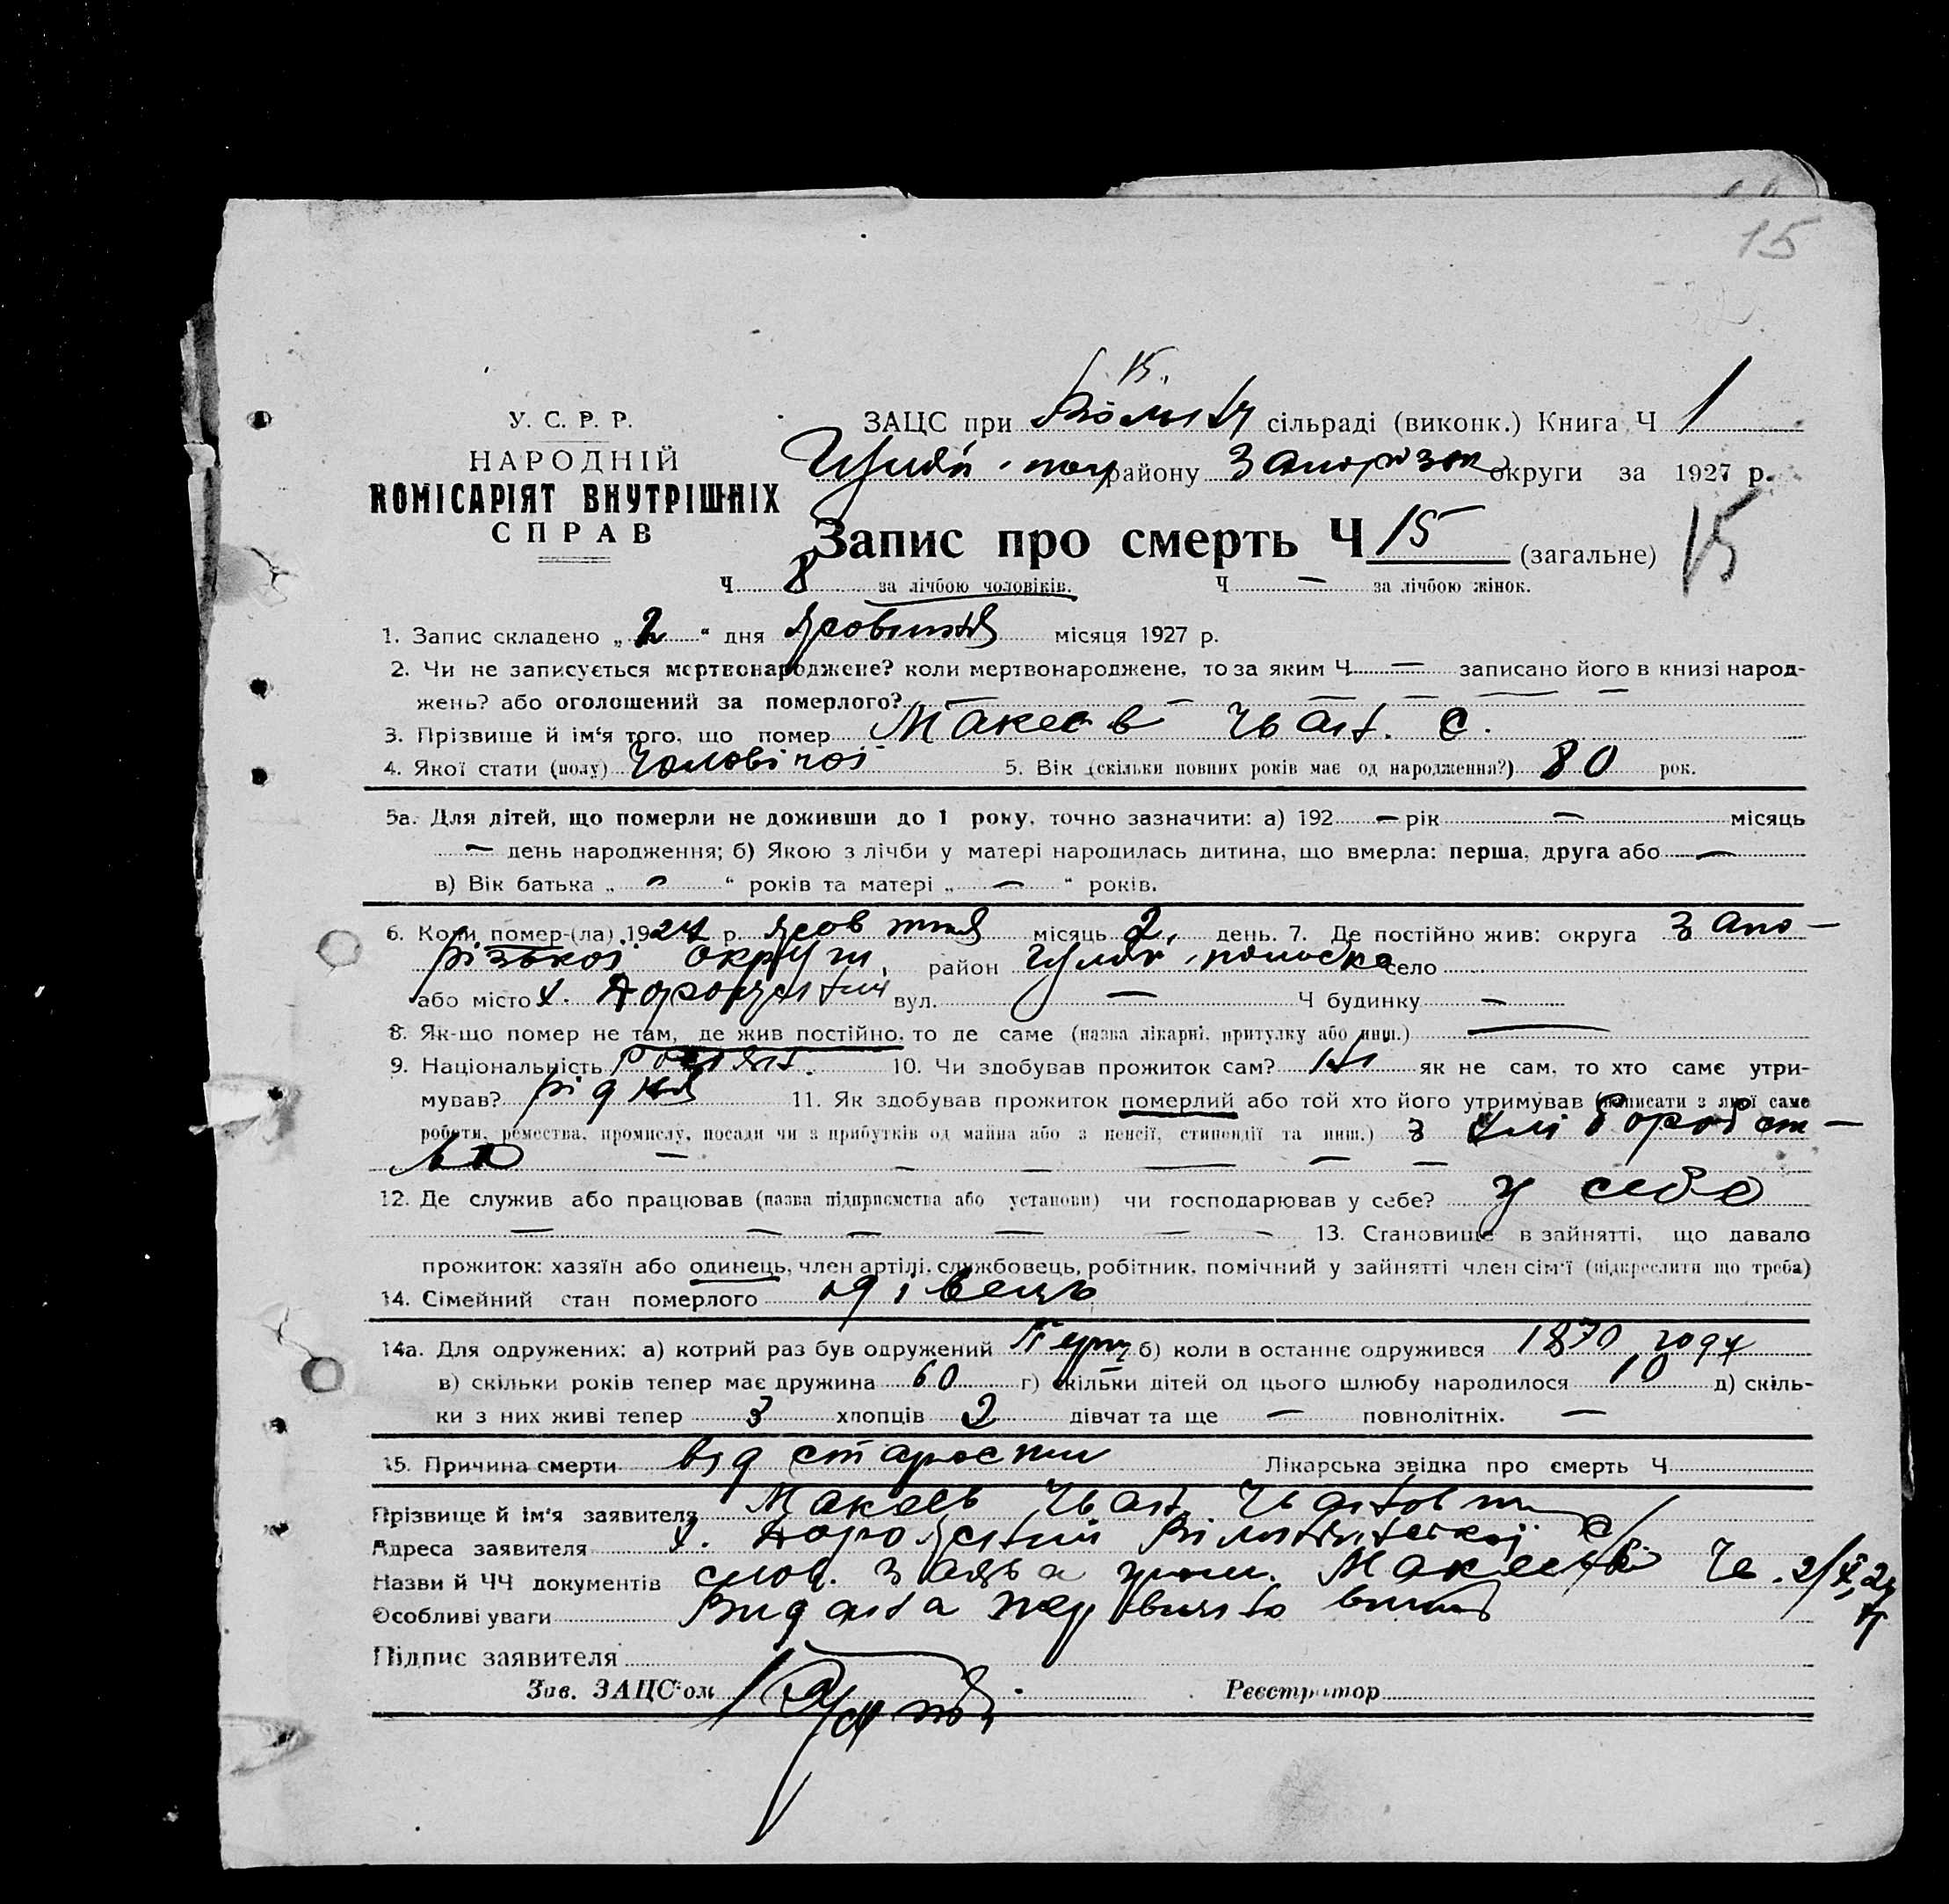 15
15.
У. С. Р. Р.
НАРОДНІЙ
КОМІСАРІЯТ ВНУТРІШНІХ
СПРАВ
ЗАЦС при сільраді (виконк.) Книга Ч 1
району Запорізьк округи за 1927 р.
Запис про смерть Ч 15 (загальне) 15
Ч 8 за лічбою чоловіків. Ч — за лічбою жінок.
1. Запис складено „ 2 “ дня жовтня місяця 1927 р.
2. Чи не записується мертвонароджене? коли мертвонароджене, то за яким Ч — записано його в книзі народ-
жень? або оголошений за померлого? — — — — — —
3. Прізвище й ім'я того, що помер Макеев Иван. С.
4. Якої стати (полу) Чоловічої 5. Вік (скільки повних років має од народження?) 80 рок.
5а. Для дітей, що померли не доживши до 1 року, точно зазначити: а) 192 — рік — місяць
— день народження; б) Якою з лічби у матері народилась дитина, що вмерла: перша, друга або —
в) Вік батька „ — “ років та матері „ — “ років.
6. Коли помер-(ла) 1927 р. жовтня місяць 2, день. 7. Де постійно жив: округа Запо-
різької округи, район Гуляй-польска село
або місто х. вул. — Ч будинку —
8. Як-що помер не там, де жив постійно, то де саме (назва лікарні, притулку або инш.) —
9. Національність 10. Чи здобував прожиток сам? ні як не сам, то хто саме утри-
мував? рідня 11. Як здобував прожиток померлий або той хто його утримував (написати з якої саме
роботи, ремества, промислу, посади чи з прибутків од майна або з пенсії, стипендії та инш.) з хліборобст-
ва — — — — — —
12. Де служив або працював (назва підприємства або установи) чи господарював у себе? у себе
— — — — — — 13. Становище в зайнятті, що давало
прожиток: хазяїн або одинець, член артілі, службовець, робітник, помічний у зайнятті член сім'ї (підкреслити що треба)
14. Сімейний стан померлого удівець
14а. Для одружених: а) котрий раз був одружений Перш. б) коли в останнє одружився 1870 году
в) скільки років тепер має дружина 60 г) скільки дітей од цього шлюбу народилося 10 д) скіль-
ки з них живі тепер 3 хлопців 2 дівчат та ще — повнолітніх. —
15. Причина смерти від старости Лікарська звідка про смерть Ч
Прізвище й ім'я заявителя Макеев Иван Иванович
Адреса заявителя х. с/р
Назви й ЧЧ документів слов. заява гром. Макеева Ив. 2/X,27
Особливі уваги Видана
Підпис заявителя
Зав. ЗАЦС'ом Реєстратор